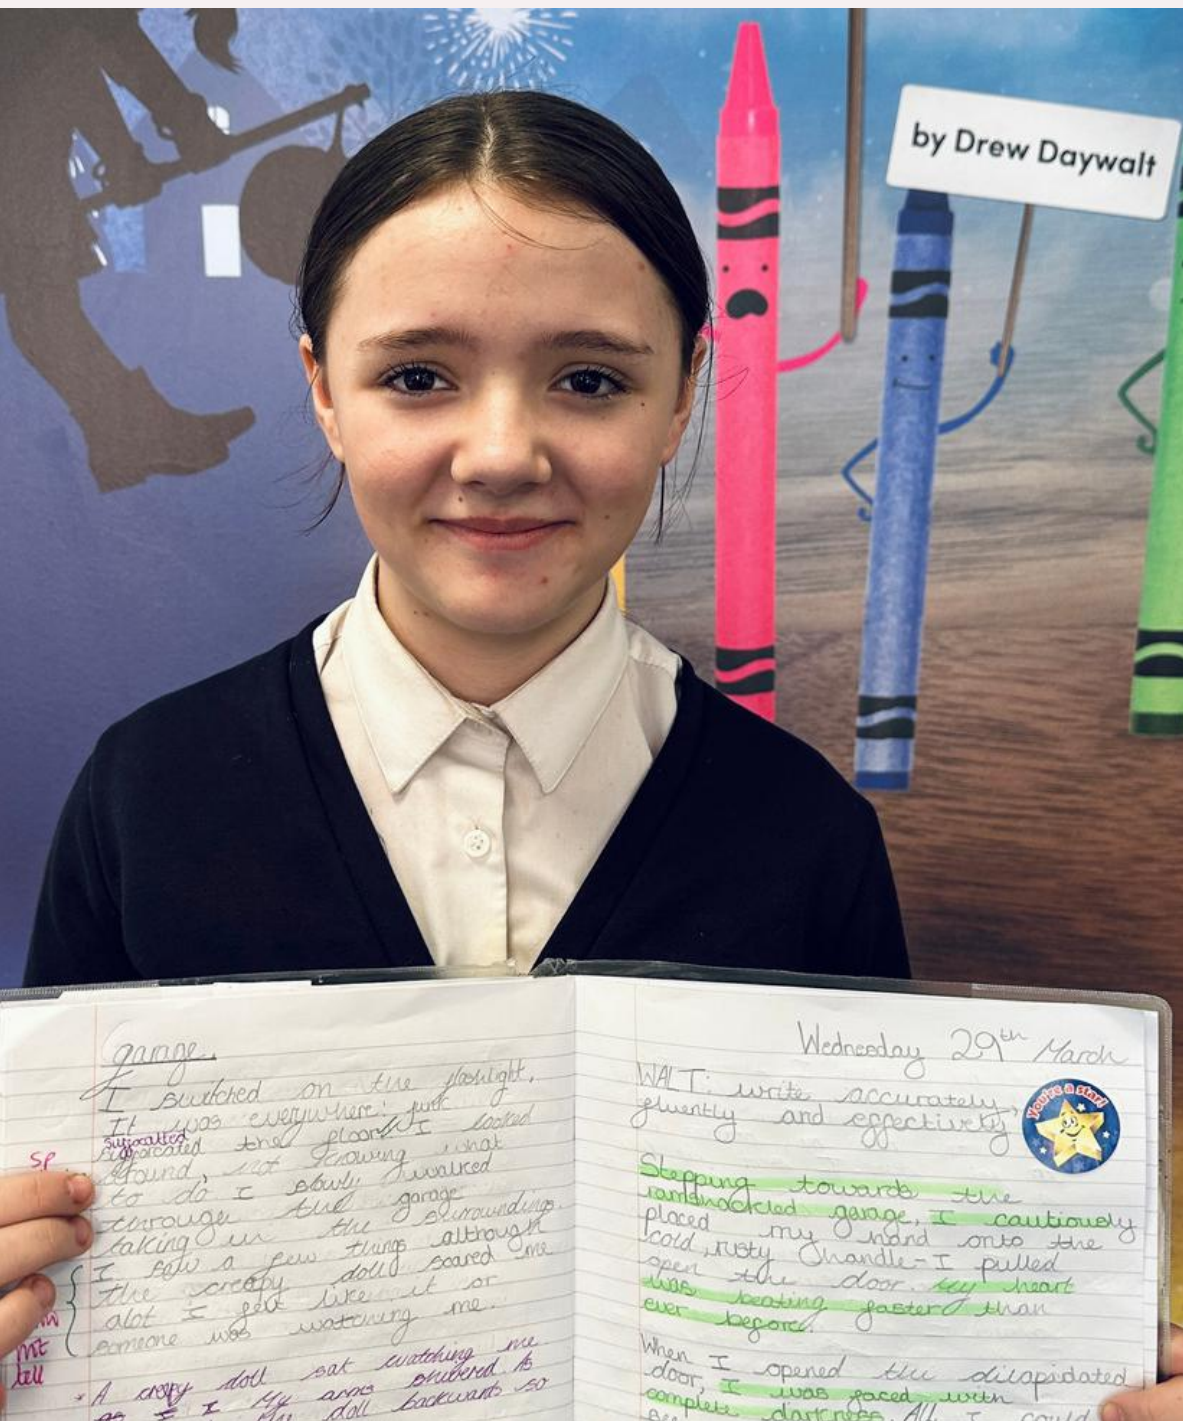 by Drew Daywalt
garage.
I switched on the flashlight.
It was everywhere: junk
suffocatted
the floor. I looked
around, not knowing what
SP
to do I slowly walked
through the garage
taking in the surroundings.
I saw a few things although
the creepy doll scared me
alot I felt like it or
someone was watching me.
tell
* A creepy doll sat watching me
as I My arms shivered As
I the doll backwards so
Wednesday 29th March
WALT: write accurately,
fluently and effectively
You're a star!
Stepping towards the
ramshackled garage, I cautiously
placed my hand onto the
cold, rusty handle-I pulled
open the door. My heart
was beating faster than
ever before.
When I opened the dilapidated
door, I was faced with
complete darkness. All I could
see